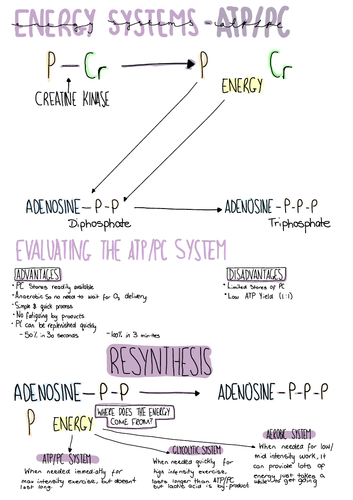 ENERGY SYSTEMS - ATP/PC
energy systems - atp/pc
P - Cr
P
Cr
ENERGY
CREATINE KINASE
ADENOSINE - P - P
Diphosphate
ADENOSINE - P - P - P
Triphosphate
EVALUATING THE ATP/PC SYSTEM
ADVANTAGES
• PC Stores readily available
• Anaerobic so no need to wait for O₂ delivery
• Simple & quick process
• No fatiguing by products
• PC can be replenished quickly
- 50% in 30 seconds
- 100% in 3 minutes
DISADVANTAGES
• Limited Stores of PC
• Low ATP Yield (1:1)
RESYNTHESIS
ADENOSINE - P - P
ADENOSINE - P - P - P
P
ENERGY
WHERE DOES THE ENERGY
COME FROM?
ATP/PC SYSTEM
When needed immediately for
max intensity exercise, but doesnt
last long.
GLYCOLYTIC SYSTEM
When needed quickly for
high intensity exercise,
lasts longer than ATP/PC
but lactic acid is by-product
AEROBIC SYSTEM
When needed for low/
mid intensity work, it
can provide lots of
energy just takes a
while to get going